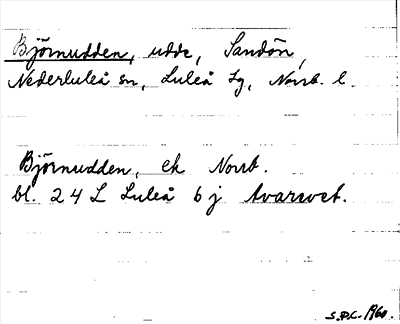 Björnudden, udde, Sandön,
Nederluleå sn, Luleå lg, Norrb. l.
Björnudden, ek Norrb.
bl. 24 L Luleå 6 j
S.P.C. 1960.